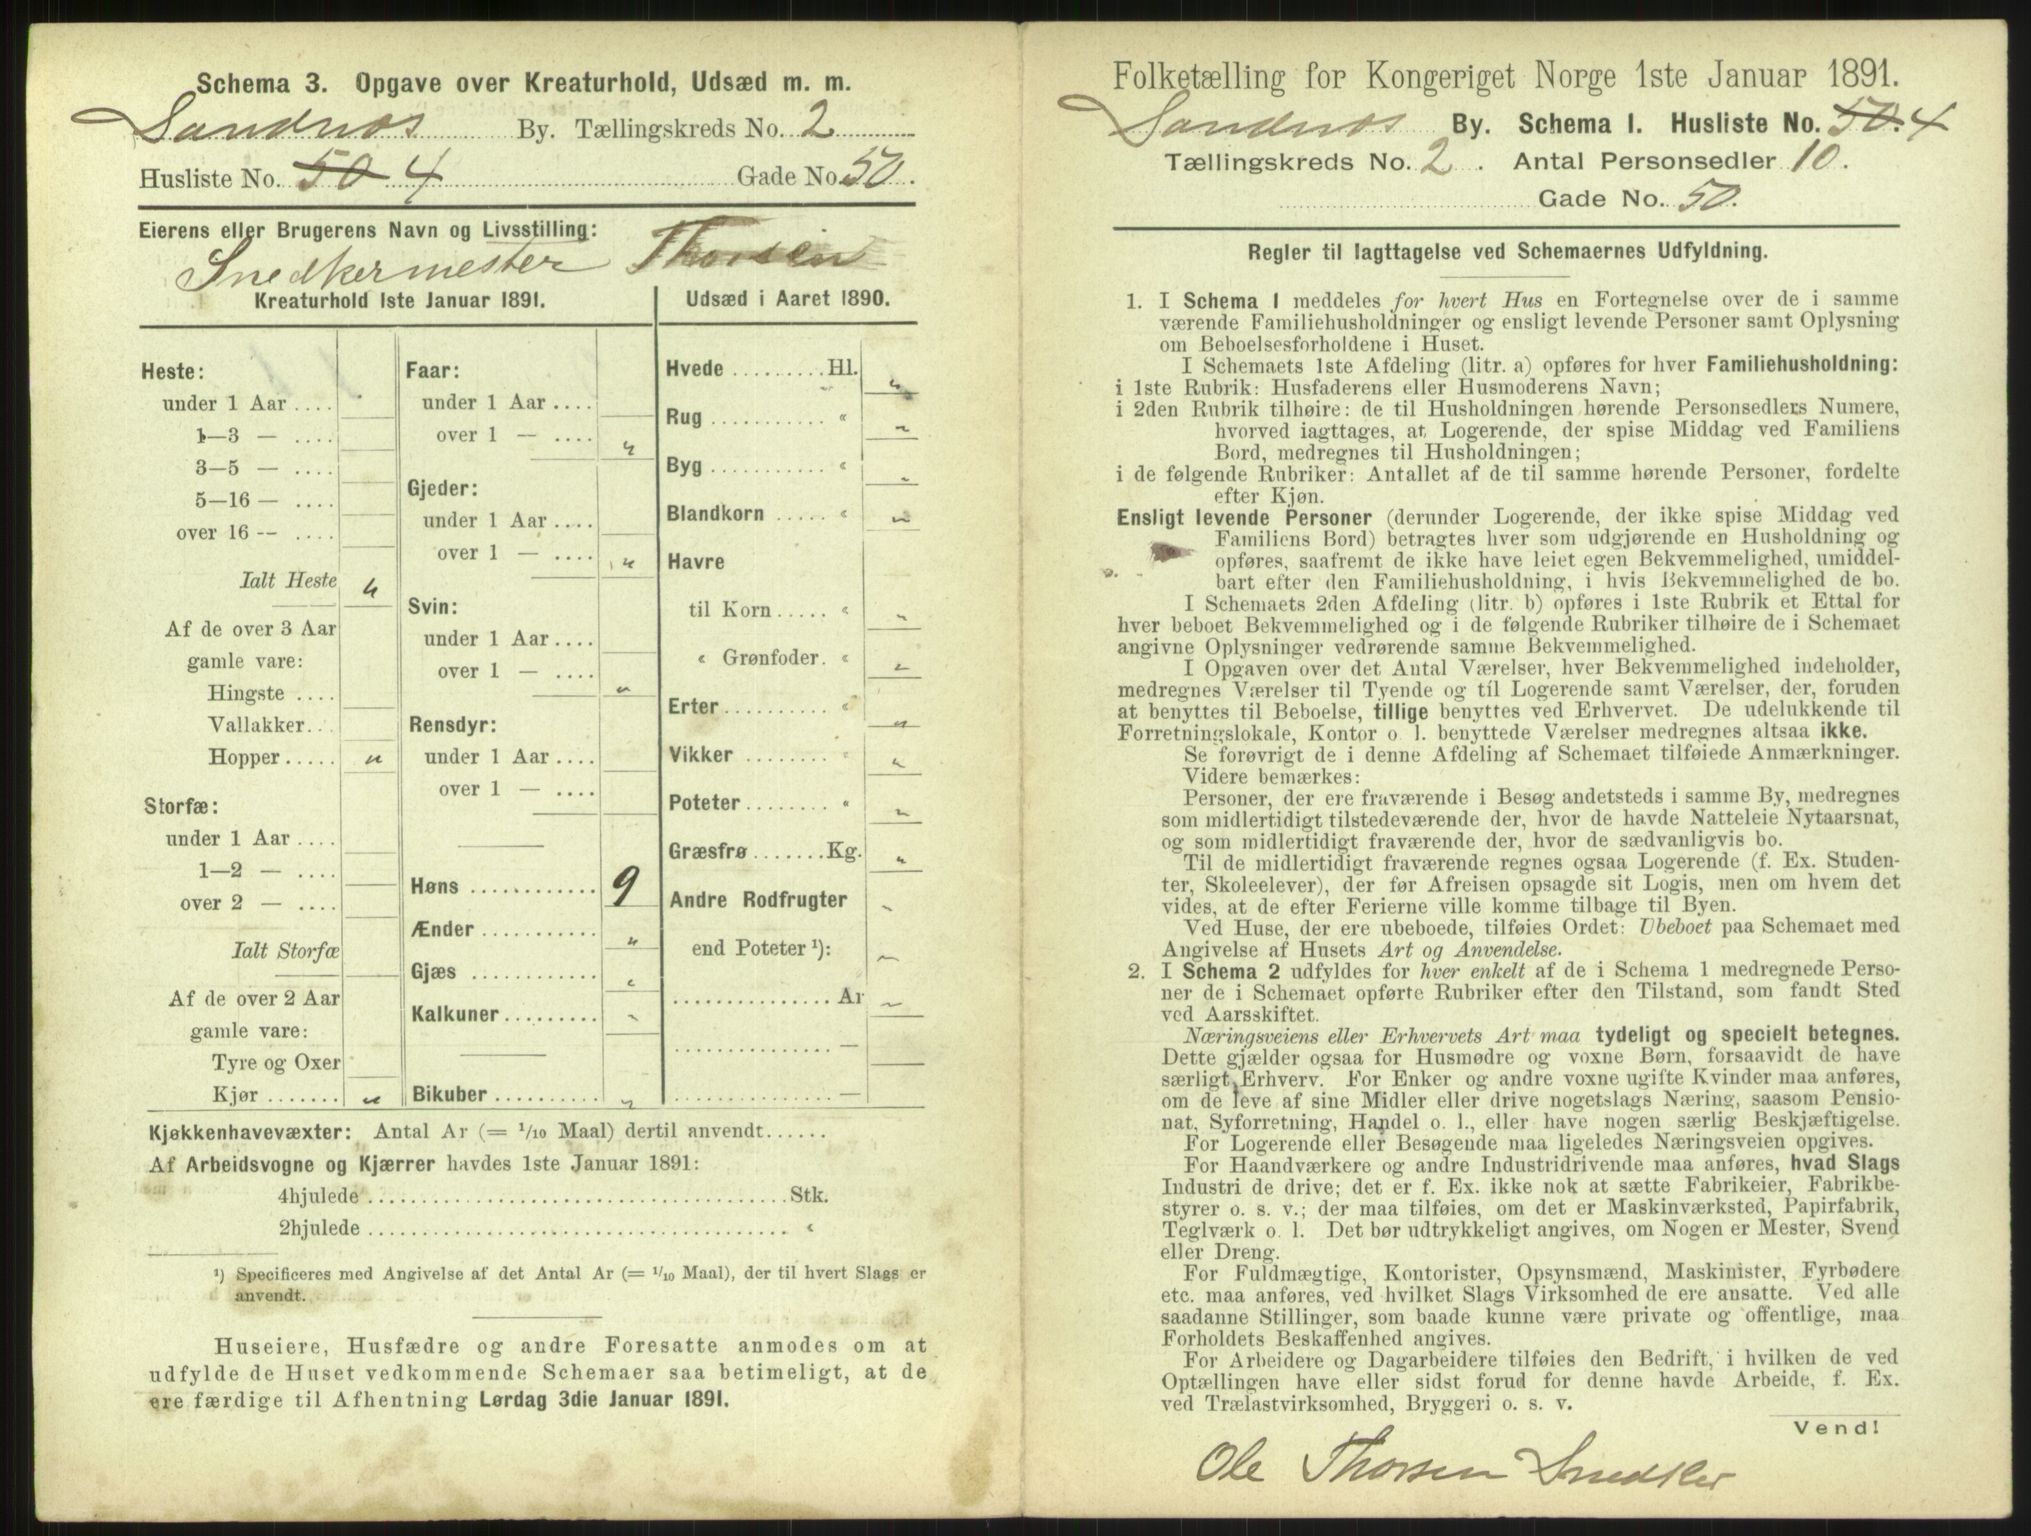 Schema 3. Opgave over Kreaturhold, Udsæd m. m.
Sandnæs By. Tællingskreds No. 2
Husliste No. 50 4 Gade No. 50.
Eierens eller Brugerens Navn og Livsstilling:
Snedkermester Thorsen
Kreaturhold 1ste Januar 1891.
Heste:
under 1 Aar ....
1—3 — ....
3—5 — ....
5—16 — ....
over 16 — ....
Ialt Heste "
Af de over 3 Aar
gamle vare:
Hingste ....
Vallakker..
Hopper ..... "
Storfæ:
under 1 Aar ....
1—2 — ....
over 2 — ....
Ialt Storfæ
Af de over 2 Aar
gamle vare:
Tyre og Oxer
Kjør ....... "
Faar:
under 1 Aar ....
over 1 — .... "
Gjeder:
under 1 Aar ....
over 1 — .... "
Svin:
under 1 Aar ....
over 1 — .... "
Rensdyr:
under 1 Aar ....
over 1 — ....
Høns ............ 9
Ænder ........... "
Gjæs ............ "
Kalkuner ......... "
Bikuber .......... "
Udsæd i Aaret 1890.
Hvede ......... Hl. "
Rug ........... " "
Byg ........... " "
Blandkorn ..... " "
Havre
til Korn ..... " "
" Grønfoder. " "
Erter .......... " "
Vikker ........ " "
Poteter ........ " "
Græsfrø ....... Kg. "
Andre Rodfrugter "
end Poteter ¹): "
............... Ar "
............... —
............... —
Kjøkkenhavevæxter: Antal Ar (= 1/10 Maal) dertil anvendt ......
Af Arbeidsvogne og Kjærrer havdes 1ste Januar 1891:
4hjulede ........................................ Stk.
2hjulede ........................................ "
¹) Specificeres med Angivelse af det Antal Ar (= 1/10 Maal), der til hvert Slags er
anvendt.
Huseiere, Husfædre og andre Foresatte anmodes om at
udfylde de Huset vedkommende Schemaer saa betimeligt, at de
ere færdige til Afhentning Lørdag 3die Januar 1891.
Folketælling for Kongeriget Norge 1ste Januar 1891.
Sandnæs By. Schema I. Husliste No. 50. 4
Tællingskreds No. 2. Antal Personsedler 10.
Gade No. 50.
Regler til Iagttagelse ved Schemaernes Udfyldning.
1. I Schema 1 meddeles for hvert Hus en Fortegnelse over de i samme
værende Familiehusholdninger og ensligt levende Personer samt Oplysning
om Beboelsesforholdene i Huset.
I Schemaets 1ste Afdeling (litr. a) opføres for hver Familiehusholdning:
i 1ste Rubrik: Husfaderens eller Husmoderens Navn;
i 2den Rubrik tilhøire: de til Husholdningen hørende Personsedlers Numere,
hvorved iagttages, at Logerende, der spise Middag ved Familiens
Bord, medregnes til Husholdningen;
i de følgende Rubriker: Antallet af de til samme hørende Personer, fordelte
efter Kjøn.
Ensligt levende Personer (derunder Logerende, der ikke spise Middag ved
Familiens Bord) betragtes hver som udgjørende en Husholdning og
opføres, saafremt de ikke have leiet egen Bekvemmelighed, umiddel-
bart efter den Familiehusholdning, i hvis Bekvemmelighed de bo.
I Schemaets 2den Afdeling (litr. b) opføres i 1ste Rubrik et Ettal for
hver beboet Bekvemmelighed og i de følgende Rubriker tilhøire de i Schemaet
angivne Oplysninger vedrørende samme Bekvemmelighed.
I Opgaven over det Antal Værelser, hver Bekvemmelighed indeholder,
medregnes Værelser til Tyende og til Logerende samt Værelser, der, foruden
at benyttes til Beboelse, tillige benyttes ved Erhvervet. De udelukkende til
Forretningslokale, Kontor o. l. benyttede Værelser medregnes altsaa ikke.
Se forøvrigt de i denne Afdeling af Schemaet tilføiede Anmærkninger.
Videre bemærkes:
Personer, der ere fraværende i Besøg andetsteds i samme By, medregnes
som midlertidigt tilstedeværende der, hvor de havde Natteleie Nytaarsnat,
og som midlertidigt fraværende der, hvor de sædvanligvis bo.
Til de midlertidigt fraværende regnes ogsaa Logerende (f. Ex. Studen-
ter, Skoleelever), der før Afreisen opsagde sit Logis, men om hvem det
vides, at de efter Ferierne ville komme tilbage til Byen.
Ved Huse, der ere ubeboede, tilføies Ordet: Ubeboet paa Schemaet med
Angivelse af Husets Art og Anvendelse.
2. I Schema 2 udfyldes for hver enkelt af de i Schema 1 medregnede Perso-
ner de i Schemaet opførte Rubriker efter den Tilstand, som fandt Sted
ved Aarsskiftet.
Næringsveiens eller Erhvervets Art maa tydeligt og specielt betegnes.
Dette gjælder ogsaa for Husmødre og voxne Børn, forsaavidt de have
særligt Erhverv. For Enker og andre voxne ugifte Kvinder maa anføres,
om de leve af sine Midler eller drive nogetslags Næring, saasom Pensio-
nat, Syforretning, Handel o. l., eller have nogen særlig Beskjæftigelse.
For Logerende eller Besøgende maa ligeledes Næringsveien opgives.
For Haandværkere og andre Industridrivende maa anføres, hvad Slags
Industri de drive; det er f. Ex. ikke nok at sætte Fabrikeier, Fabrikbe-
styrer o. s. v.; der maa tilføies, om det er Maskinværksted, Papirfabrik,
Teglværk o. l. Det bør udtrykkeligt angives, om Nogen er Mester, Svend
eller Dreng.
For Fuldmægtige, Kontorister, Opsynsmænd, Maskinister, Fyrbødere
etc. maa anføres, ved hvilket Slags Virksomhed de ere ansatte. Ved alle
saadanne Stillinger, som baade kunne være private og offentlige, maa
Forholdets Beskaffenhed angives.
For Arbeidere og Dagarbeidere tilføies den Bedrift, i hvilken de ved
Optællingen have eller sidst forud for denne havde Arbeide, f. Ex.
ved Trælastvirksomhed, Bryggeri o. s. v.
Vend!
Ole Thorsen Snedker